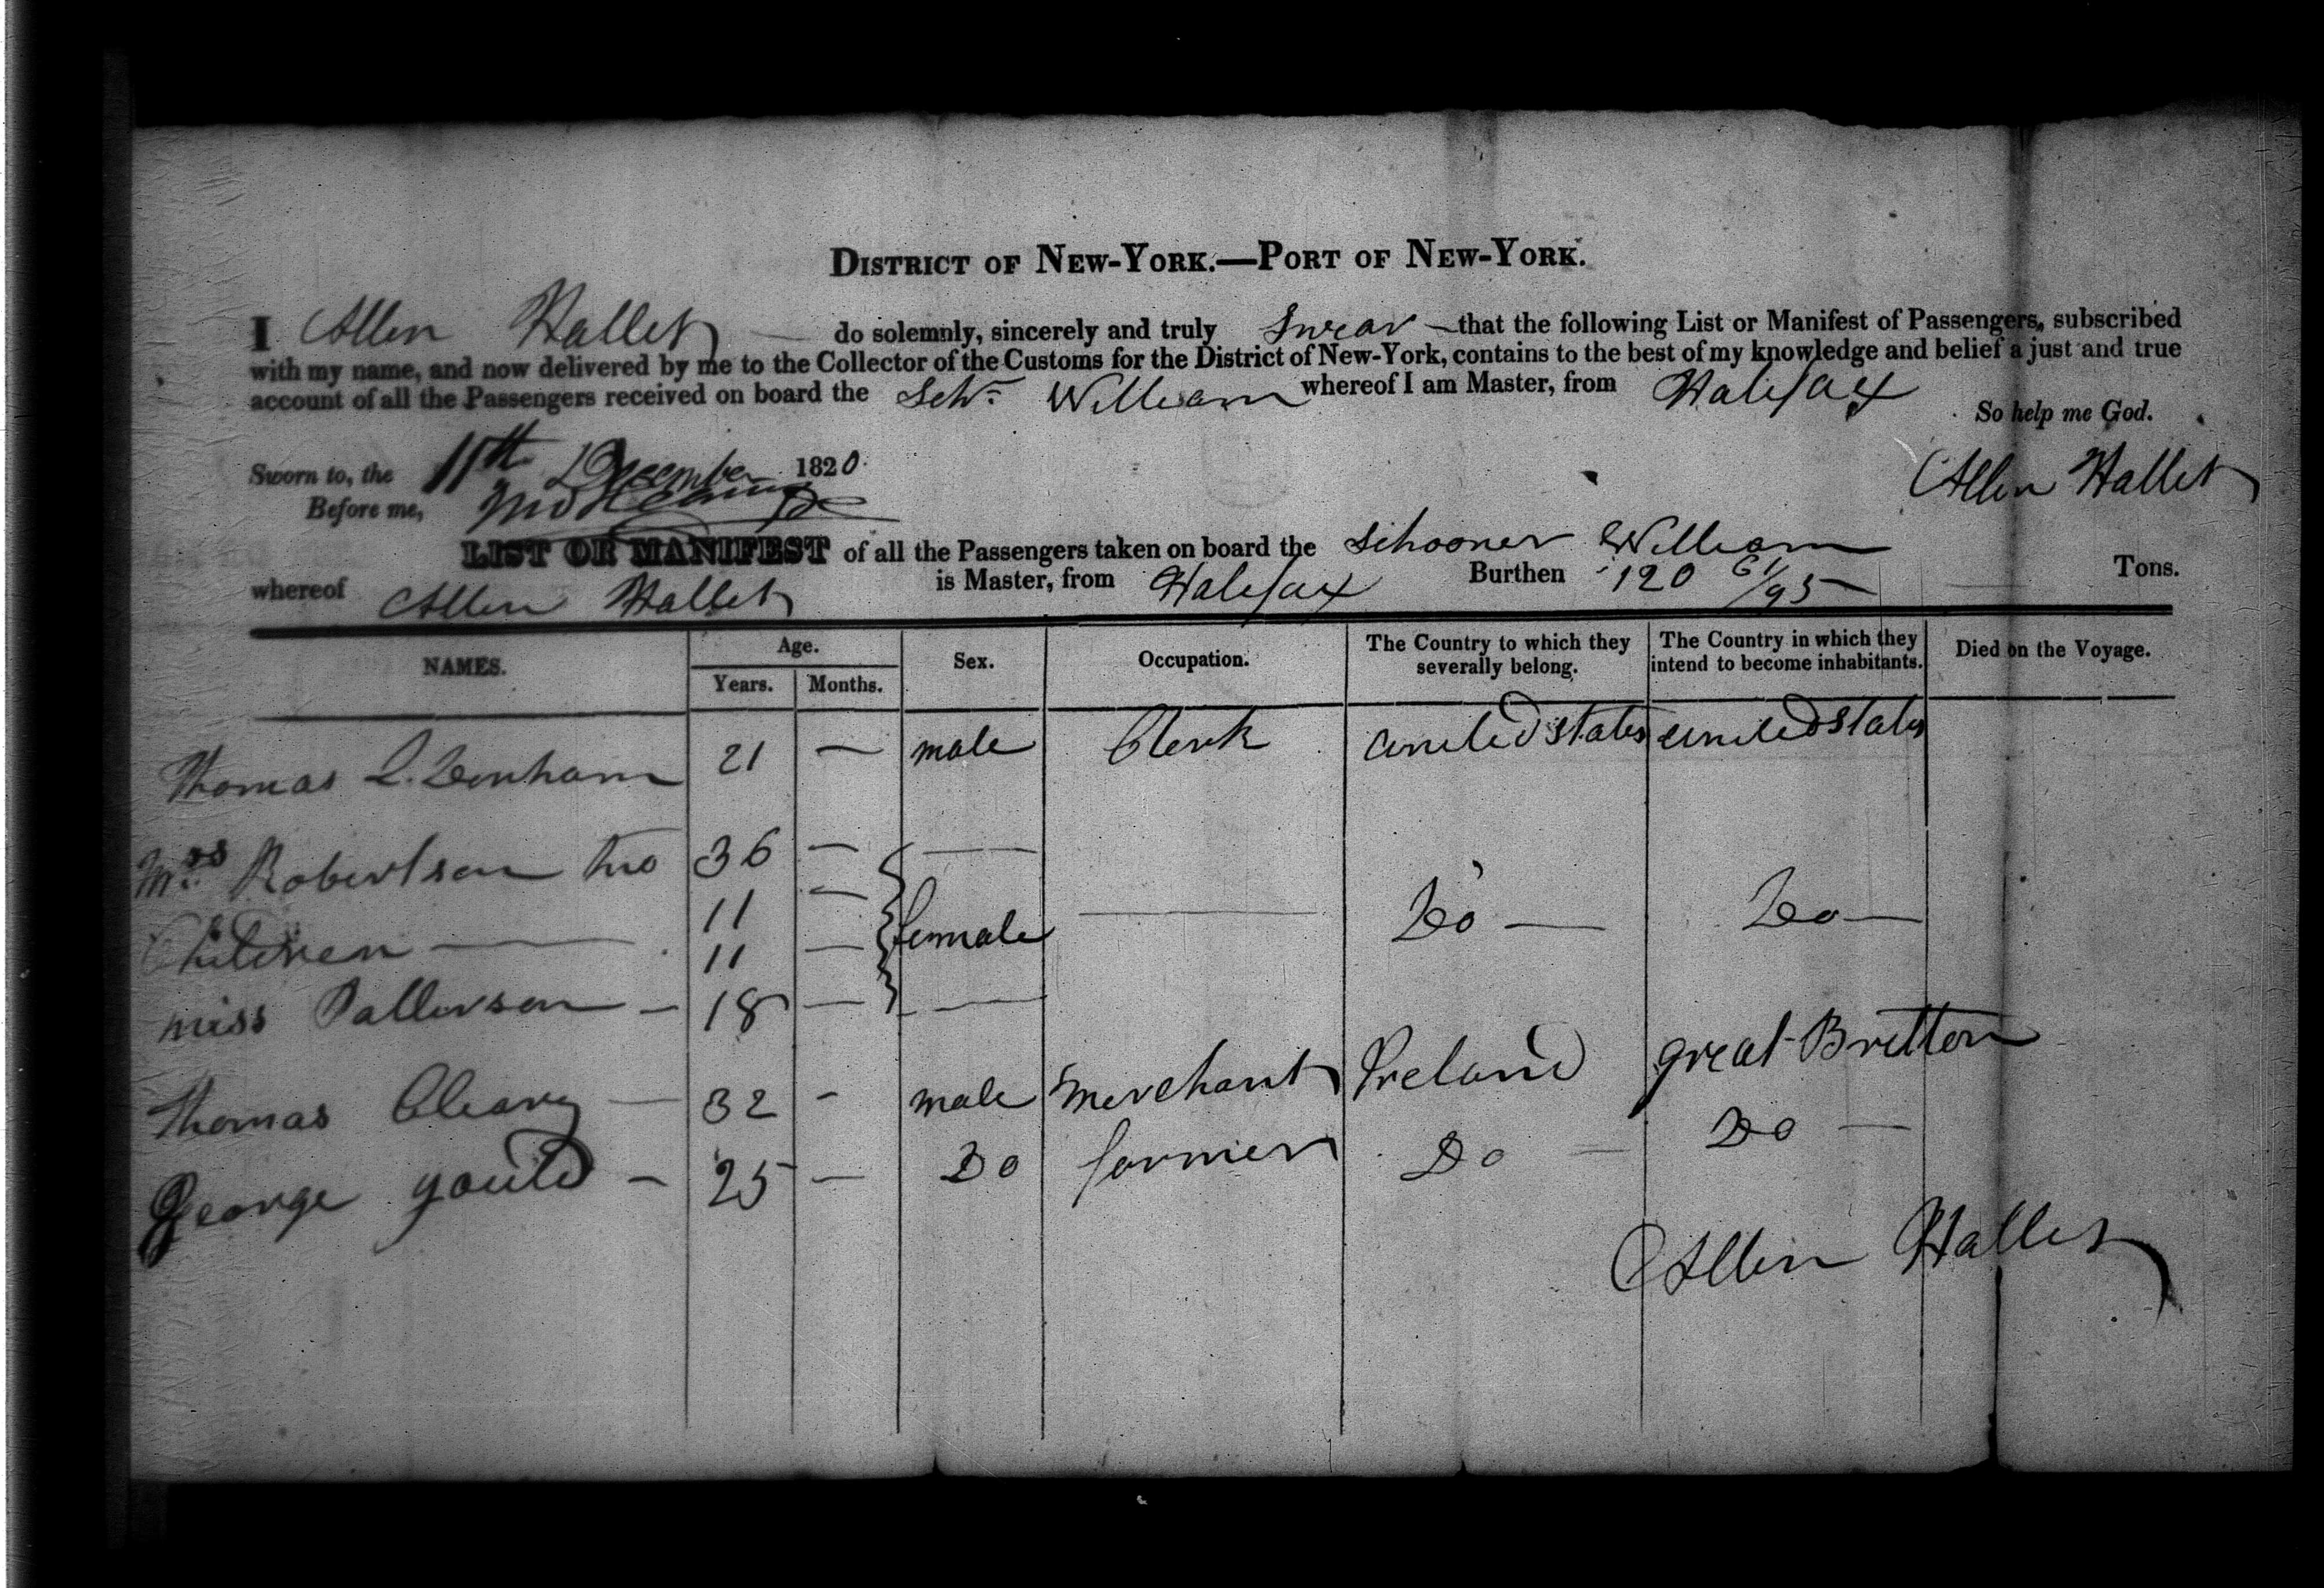 DISTRICT OF NEW-YORK.—PORT OF NEW-YORK.
I Allen Hallet do solemnly, sincerely and truly Swear that the following List or Manifest of Passengers, subscribed
with my name, and now delivered by me to the Collector of the Customs for the District of New-York, contains to the best of my knowledge and belief a just and true
account of all the Passengers received on board the Schr. William whereof I am Master, from Halifax
So help me God.
Sworn to, the 11th December 1820.
Allen Hallet
Before me,
LIST OR MANIFEST of all the Passengers taken on board the Schooner William
whereof Allen Hallet is Master, from Halifax Burthen 120 61/95 Tons.
NAMES. Age. Years. Months. Sex. Occupation. The Country to which they severally belong. The Country in which they intend to become inhabitants. Died on the Voyage.
Thomas L. Denham 21 — male Clerk united states united states
Mrs Robertson two 36 —
Children 11 — 11 — female — Do — Do —
miss Patterson — 18 —
Thomas Cleary — 32 - male merchant Ireland great Britton
George gould — 25 — Do farmer Do — Do —
Allen Hallet